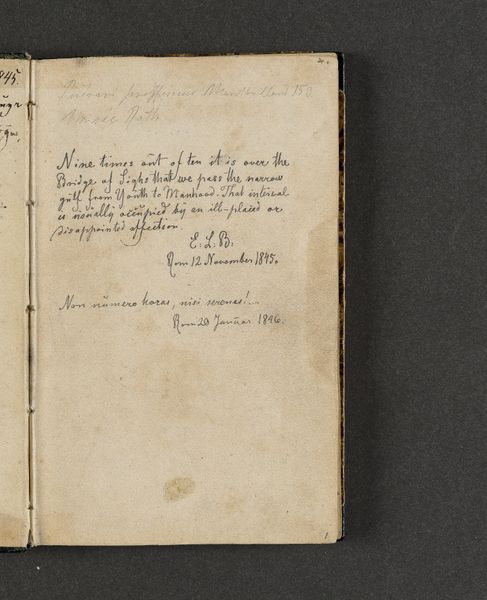 Nine times oūt of ten it is over the
Bridge of Sighs that we pass the narrow
gulf from Youth to Manhood. That interval
is usually occūpied by an ill-placed or
disappointed affection.
E. L. B.
Rom 12 November 1845.
Non nūmero horas, nisi serenas!
Rom 20 Janūar 1846.
1845.
1